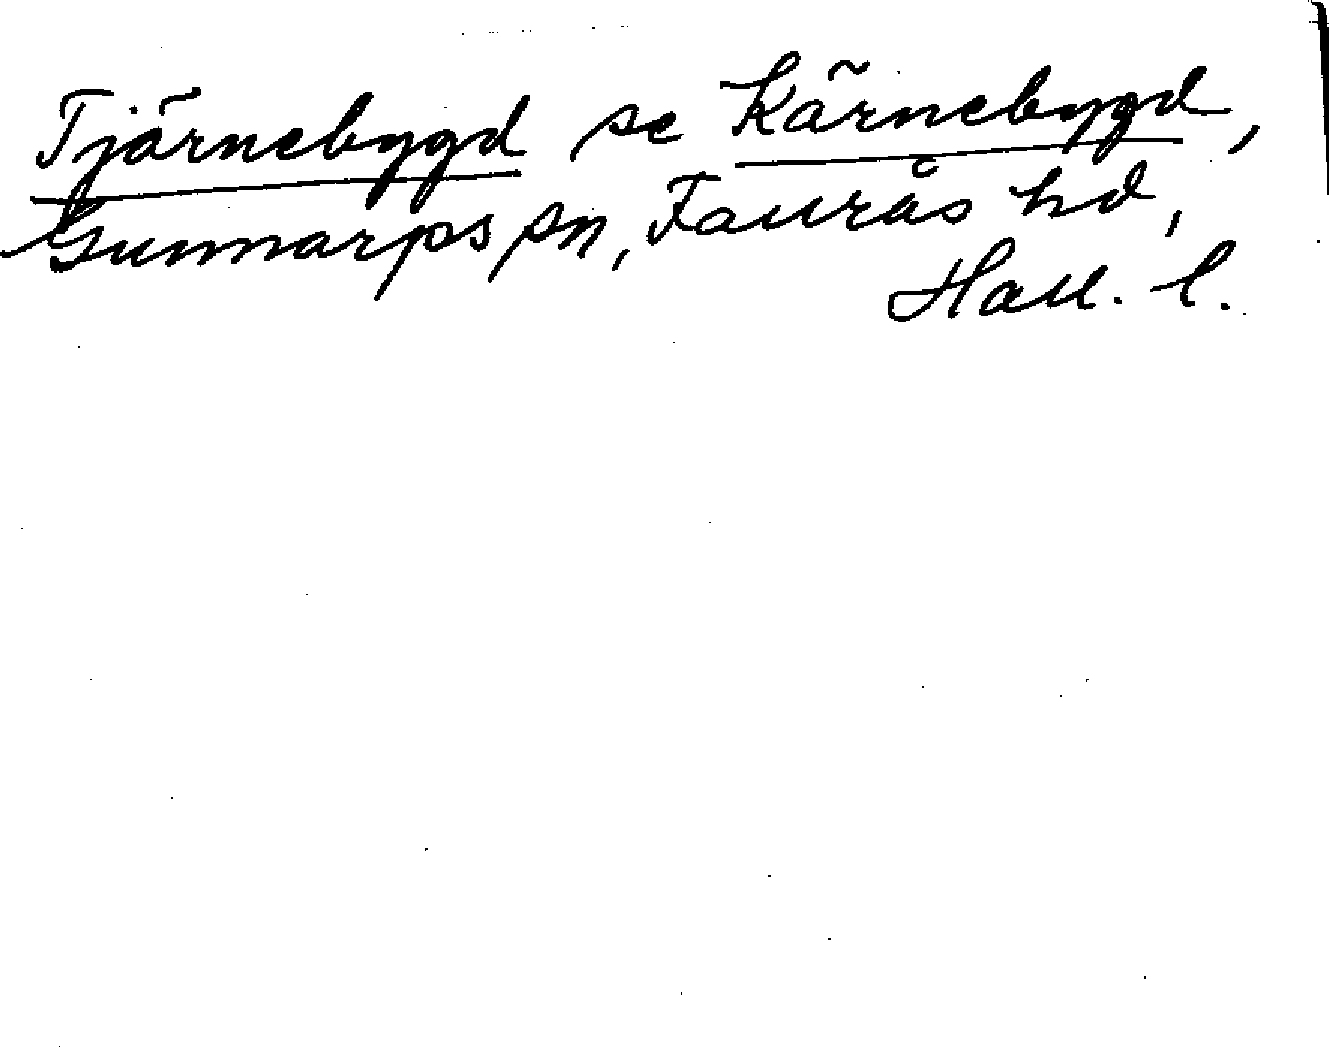 Tjärnebygd se Kärnebygd,
Gunnarps sn, Faurås hd,
Hall. l.